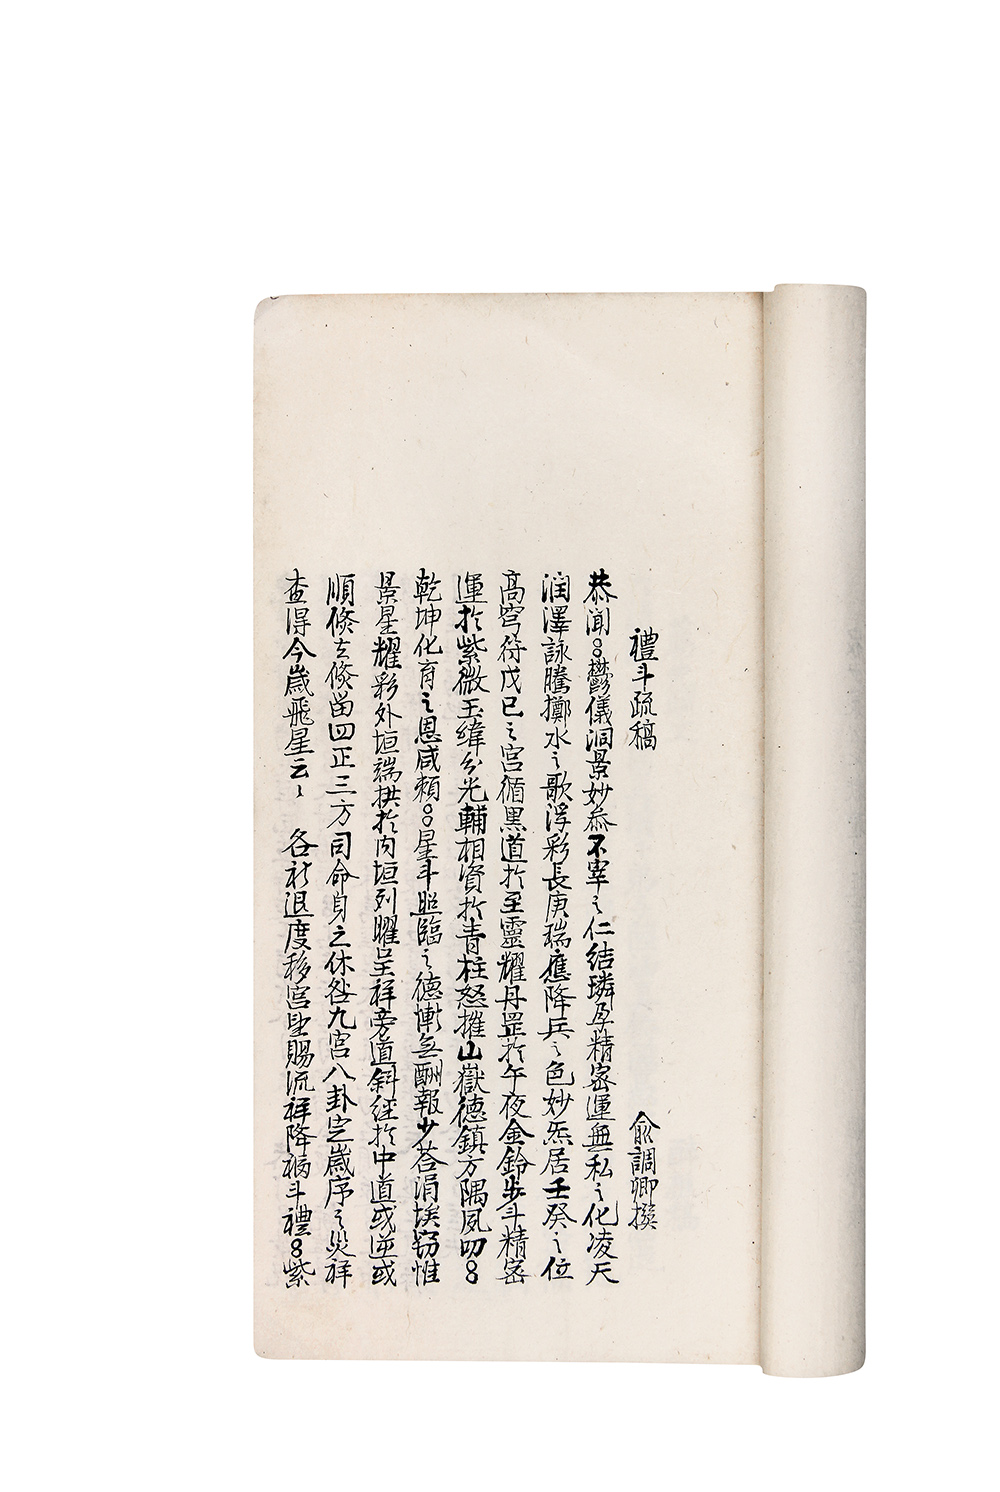 禮斗疏稿 俞調卿撰
恭聞〻鬱儀洞景妙叅不宰之仁結璘孕精密運無私之化凌天
润澤詠騰擲水之歌浮彩長庚瑞應降兵之色妙炁居壬癸之位
高穹符戊已之宮循黑道於至靈耀丹罡於午夜金鈴步斗精密
運於紫微玉緯分光輔相資於青柱怒摧山嶽德鎮方隅夙叨〻
乾坤化育之恩咸頼〻星斗照臨之德慚無酬報少荅涓埃窃惟
景星耀彩外垣端拱於内垣列曜呈祥旁道斜經於中道或逆或
順條去條留四正三方司命身之休咎九宮八卦定歲序之災祥
查得今歲飛星云〻 各祈退度移宮皆賜流祥降福斗禮〻紫